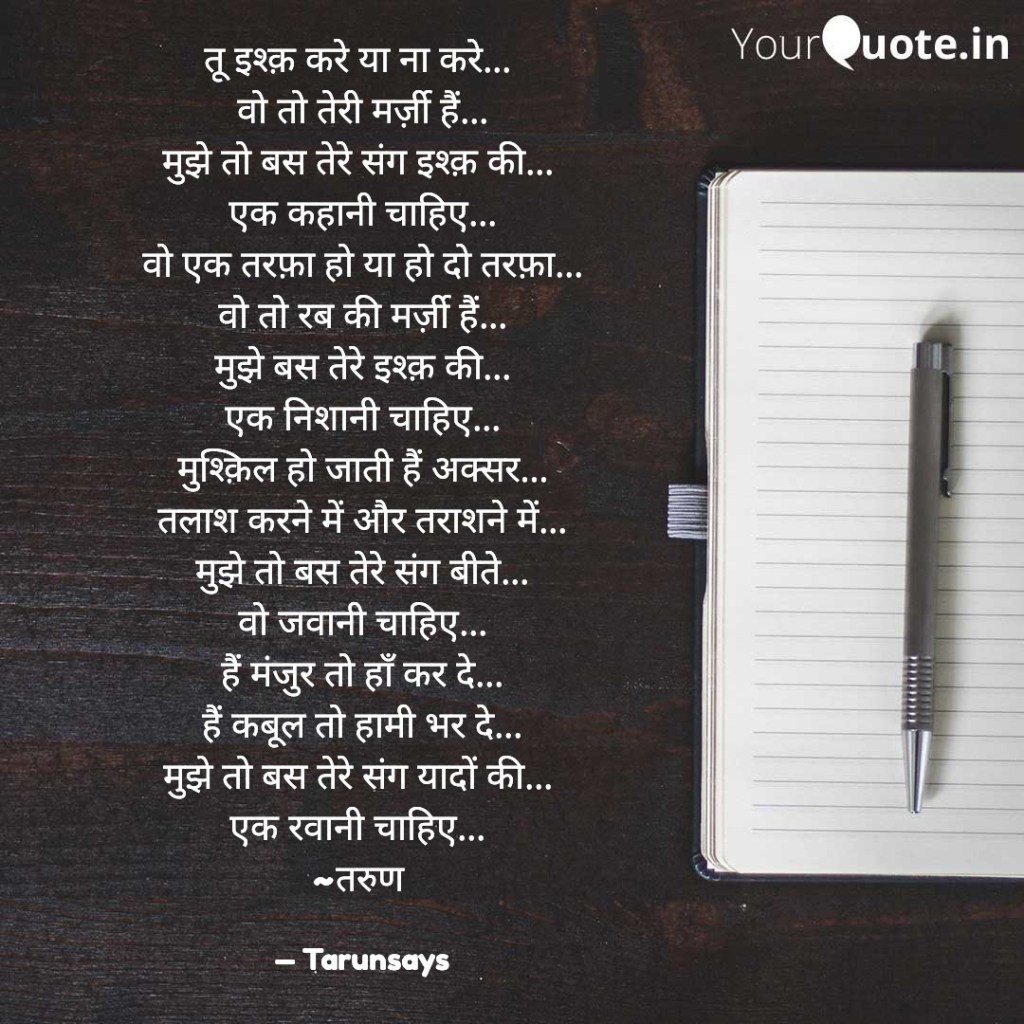 YourQuote.in
तू इश्क़ करे या ना करे...
वो तो तेरी मर्ज़ी हैं...
मुझे तो बस तेरे संग इश्क़ की...
एक कहानी चाहिए...
वो एक तरफ़ा हो या हो दो तरफ़ा...
वो तो रब की मर्ज़ी हैं...
मुझे बस तेरे इश्क़ की...
एक निशानी चाहिए...
मुश्क़िल हो जाती हैं अक्सर...
तलाश करने में और तराशने में...
मुझे तो बस तेरे संग बीते...
वो जवानी चाहिए...
हैं मंजुर तो हाँ कर दे...
हैं कबूल तो हामी भर दे...
मुझे तो बस तेरे संग यादों की...
एक रवानी चाहिए...
~तरुण
— Tarunsays